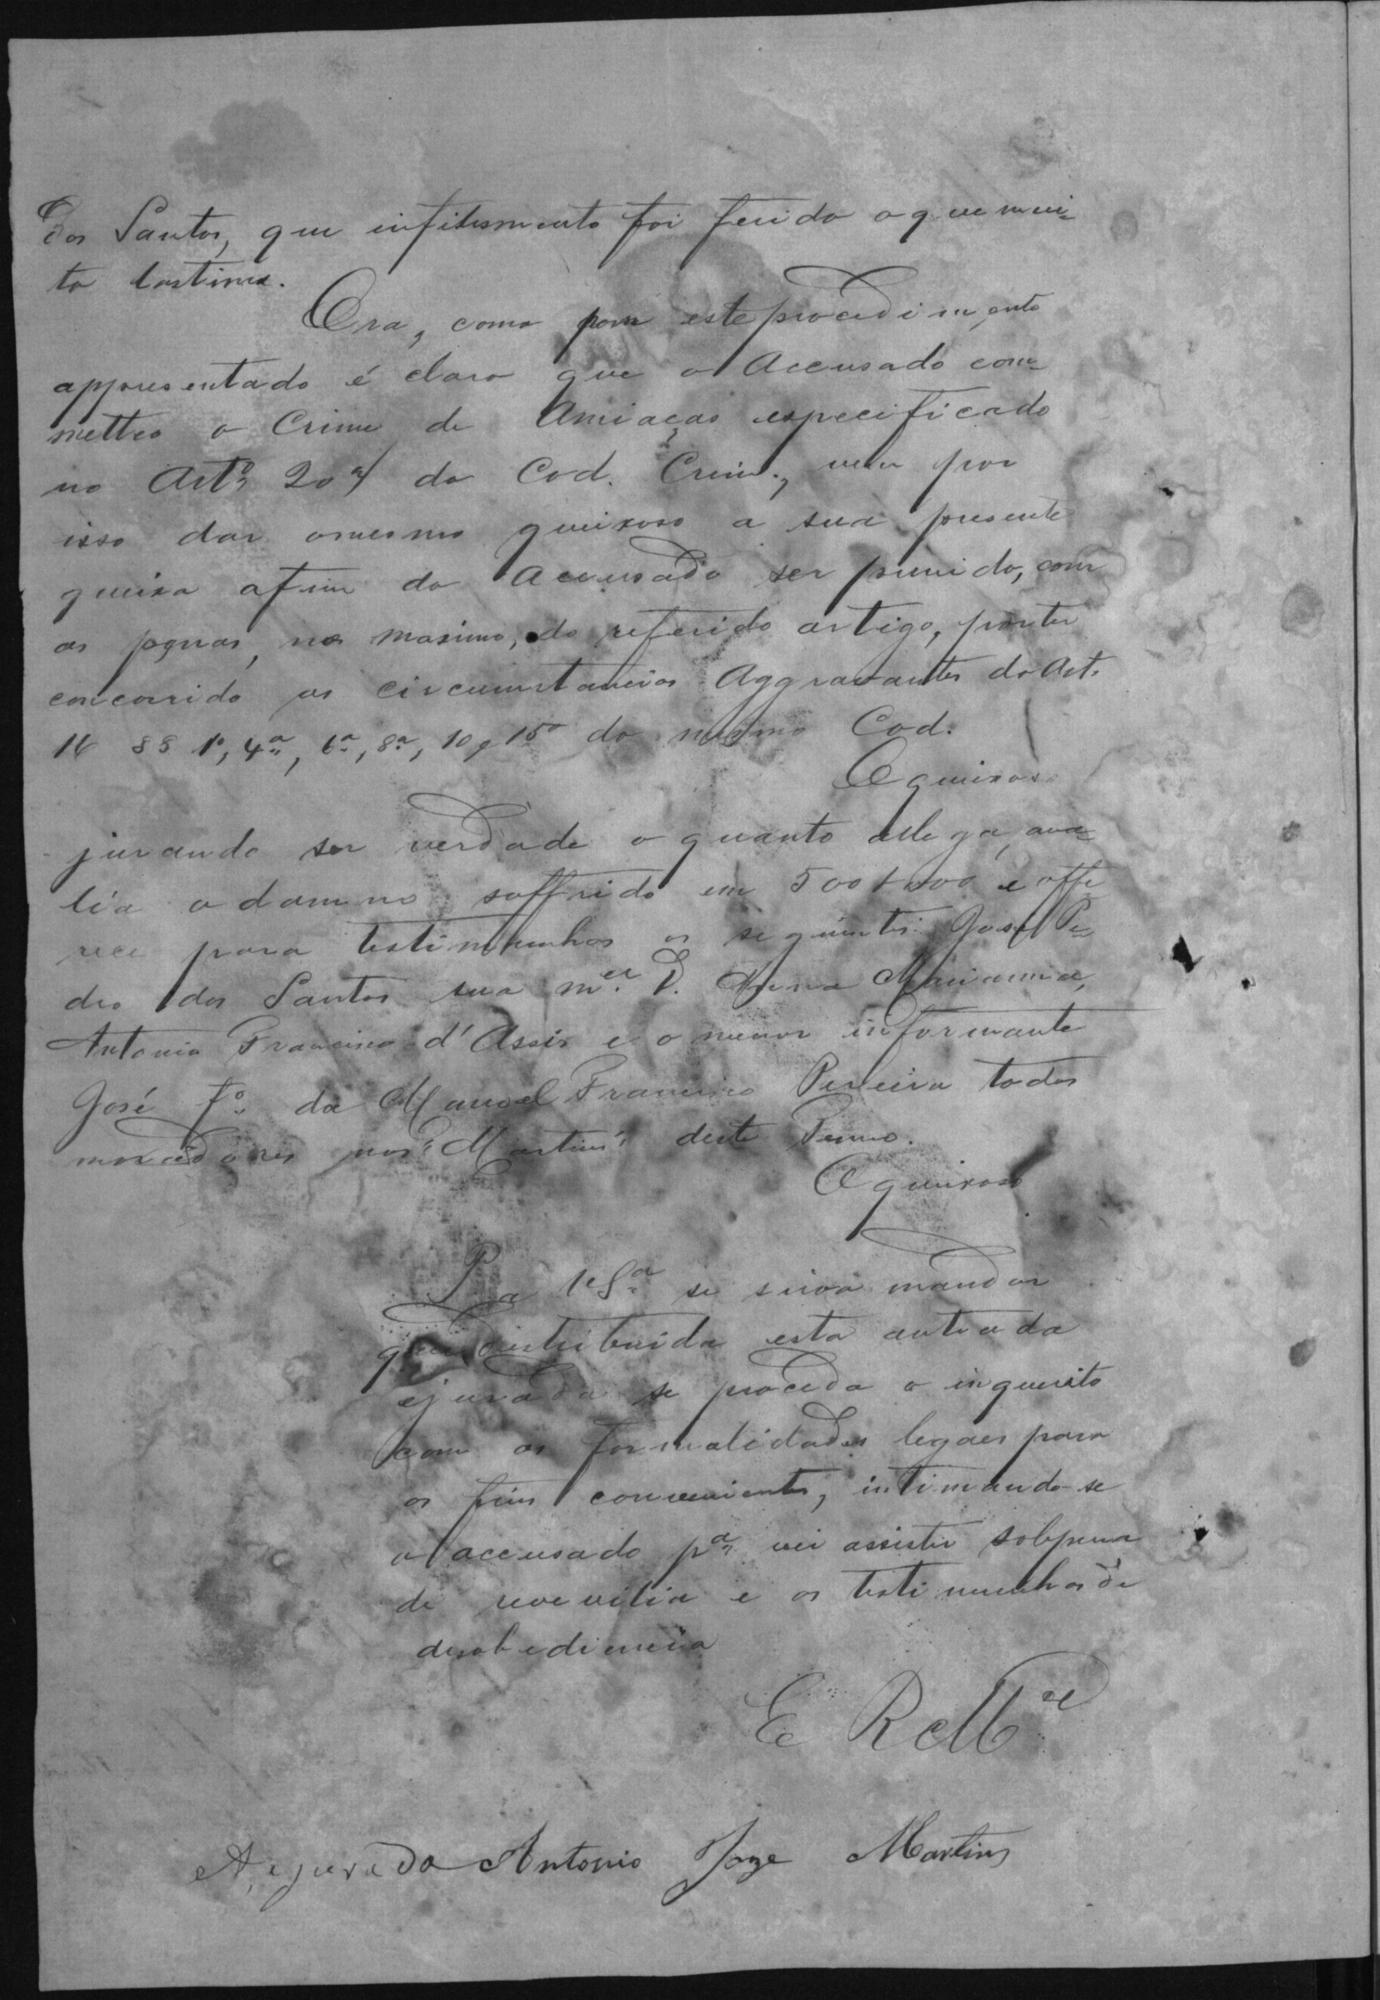 dos Santos, que infilismente foi ferido o que mui-
to lastima.
Ora, como por este procedimento
appresentado é claro que o Accusado com-
metteo o Crime de Amiaças especificado
no Artº 207 do Cod. Crim., vem por
isso dar o mesmo queixoso a sua presente
queixa afim do Accusado ser punido, com
as penas, no maximo, do referido artigo, por ter
concorrido as circumstancias Aggravantes do Art.
16 §§ 1º, 4ª, 6ª, 8ª, 10 e 15º do mesmo Cod.
O queixoso
jurando ser verdade o quanto allega, ava-
lia o damno soffrido em 500$000 e offe
rece para testimunhas os seguintes: José Pe-
dro dos Santos sua mer. D. Anna Marianna,
Antonio Francisco d'Assis e o menor informante
José fº de Manoel Francisco Pereira todos
moradores nos "Martins" deste Termo.
O queixoso
P. a V Sª se sirva mandar
que distribuida esta autoada
e jurada se proceda o inquerito
com as formalidades legaes para
os fins convenientes, intimando-se
o accusado pª vir assistir sob pena
de revevilia e as testimunhas de
desobediencia
E R Mce
A, e jurado Antonio Joze Martins